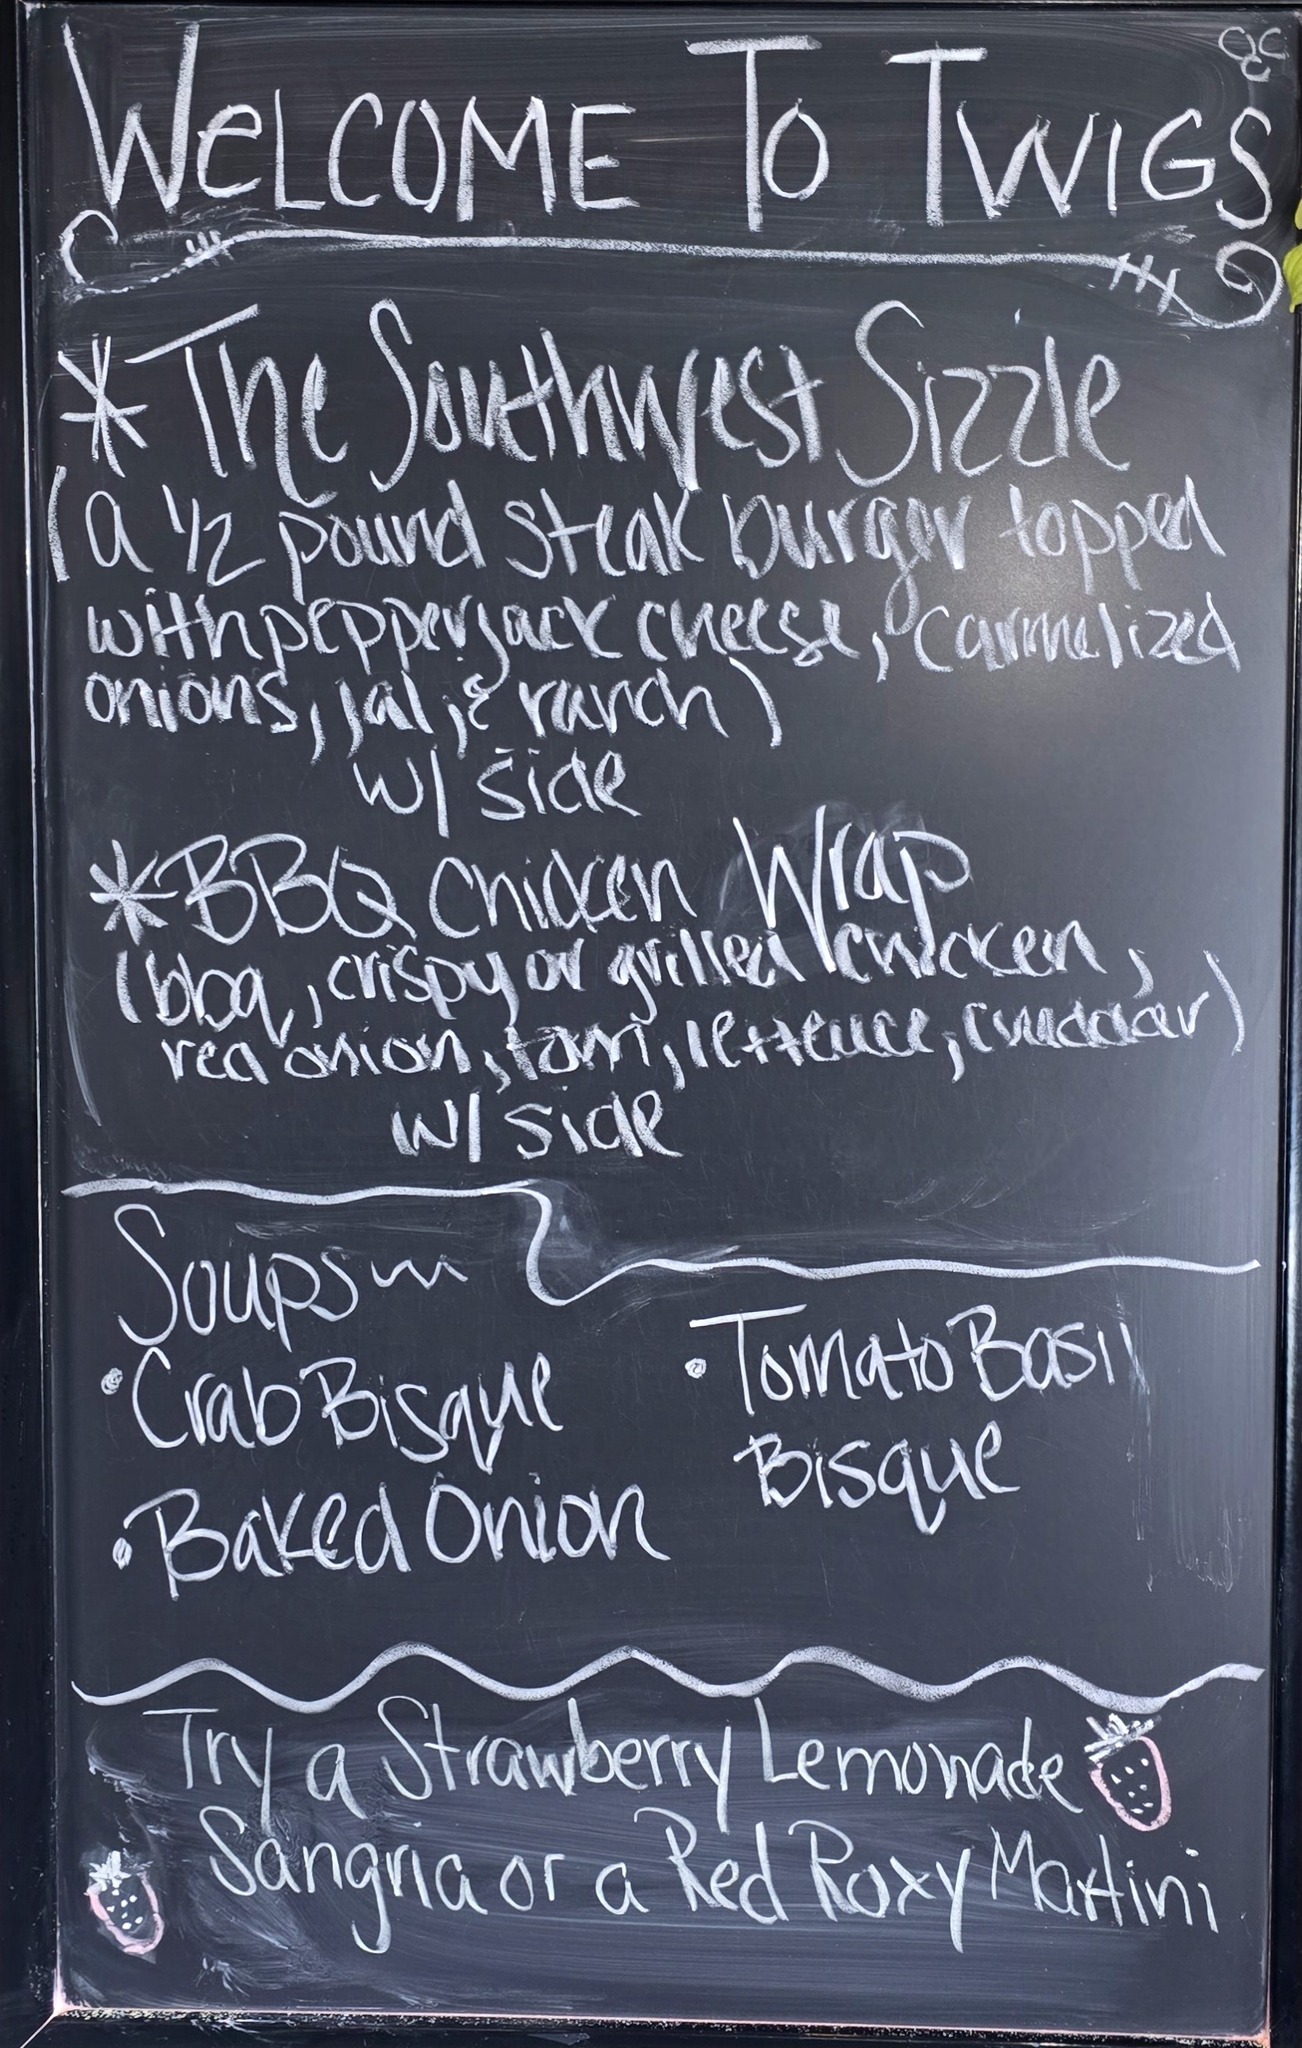 WeLCOME TO TWIGS
* The Southwest Sizzle
(a 1/2 pound steak burger topped
with pepperjack cheese, carmelized
onions, jal, & ranch)
w/ side
* BBQ Chicken Wrap
(bbq, crispy or grilled chicken,
red onion, tom, letteuce, cheddar)
w/ side
Soups
• Crab Bisque
• Baked Onion
• Tomato Basil
Bisque
Try a Strawberry Lemonade
Sangria or a Red Roxy Martini